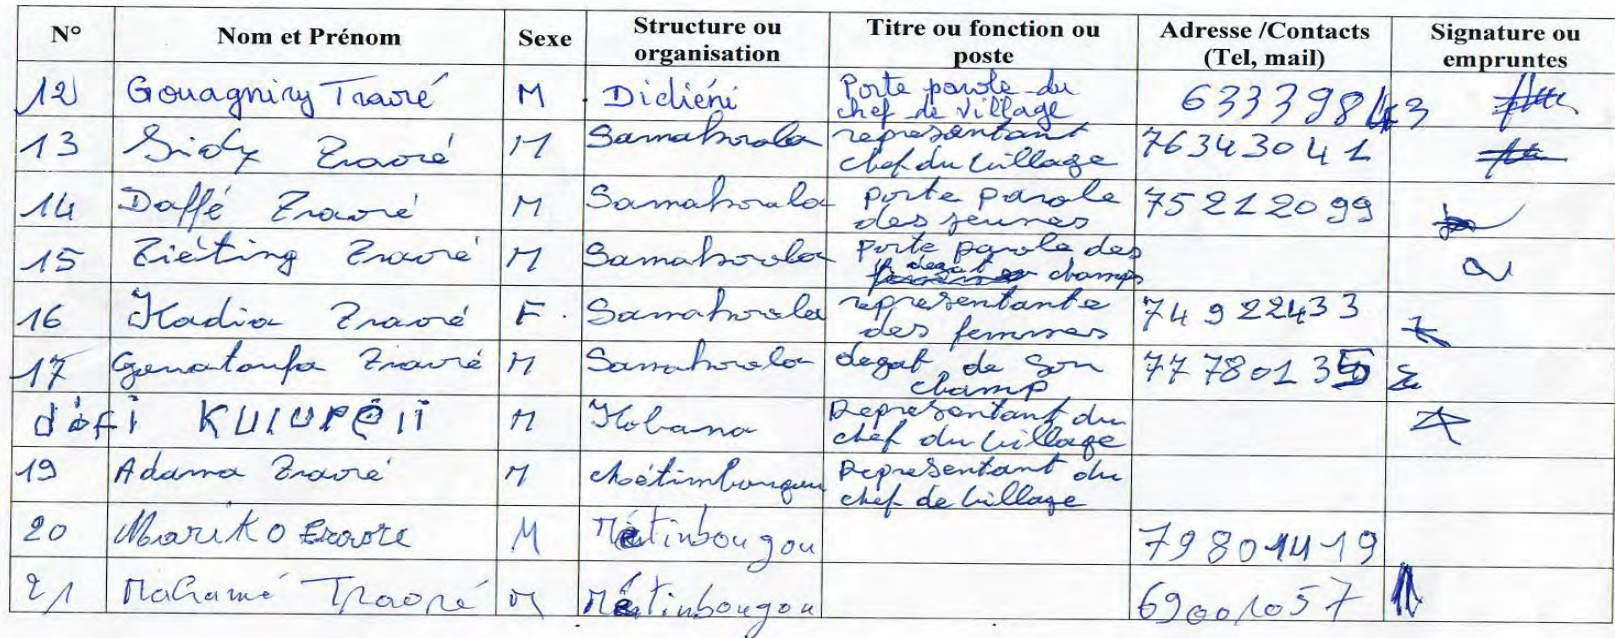 N° Nom et Prénom Sexe Structure ou organisation Titre ou fonction ou poste Adresse /Contacts (Tel, mail) Signature ou empruntes
12 Gouagniny Traoré M Didiéni Porte parole du chef de village 63339843
13 Sidy Traoré M Samahorola representant chef du village 76343041
14 Daffé Traoré M Samahorola porte parole des jeunes 75212099
15 Ziéting Traoré M Samahorola porte parole des degat champs
16 Kadia Traoré F Samahorola representante des femmes 74922433
17 Traoré M Samahorola degat de son champ 77780135
M Kobana Representant du chef du village
19 Adama Traoré M Representant du chef de village
20 Mariko Traore M Métinbougou 79801419
21 Mahamé Traoré M Métinbougou 69001057